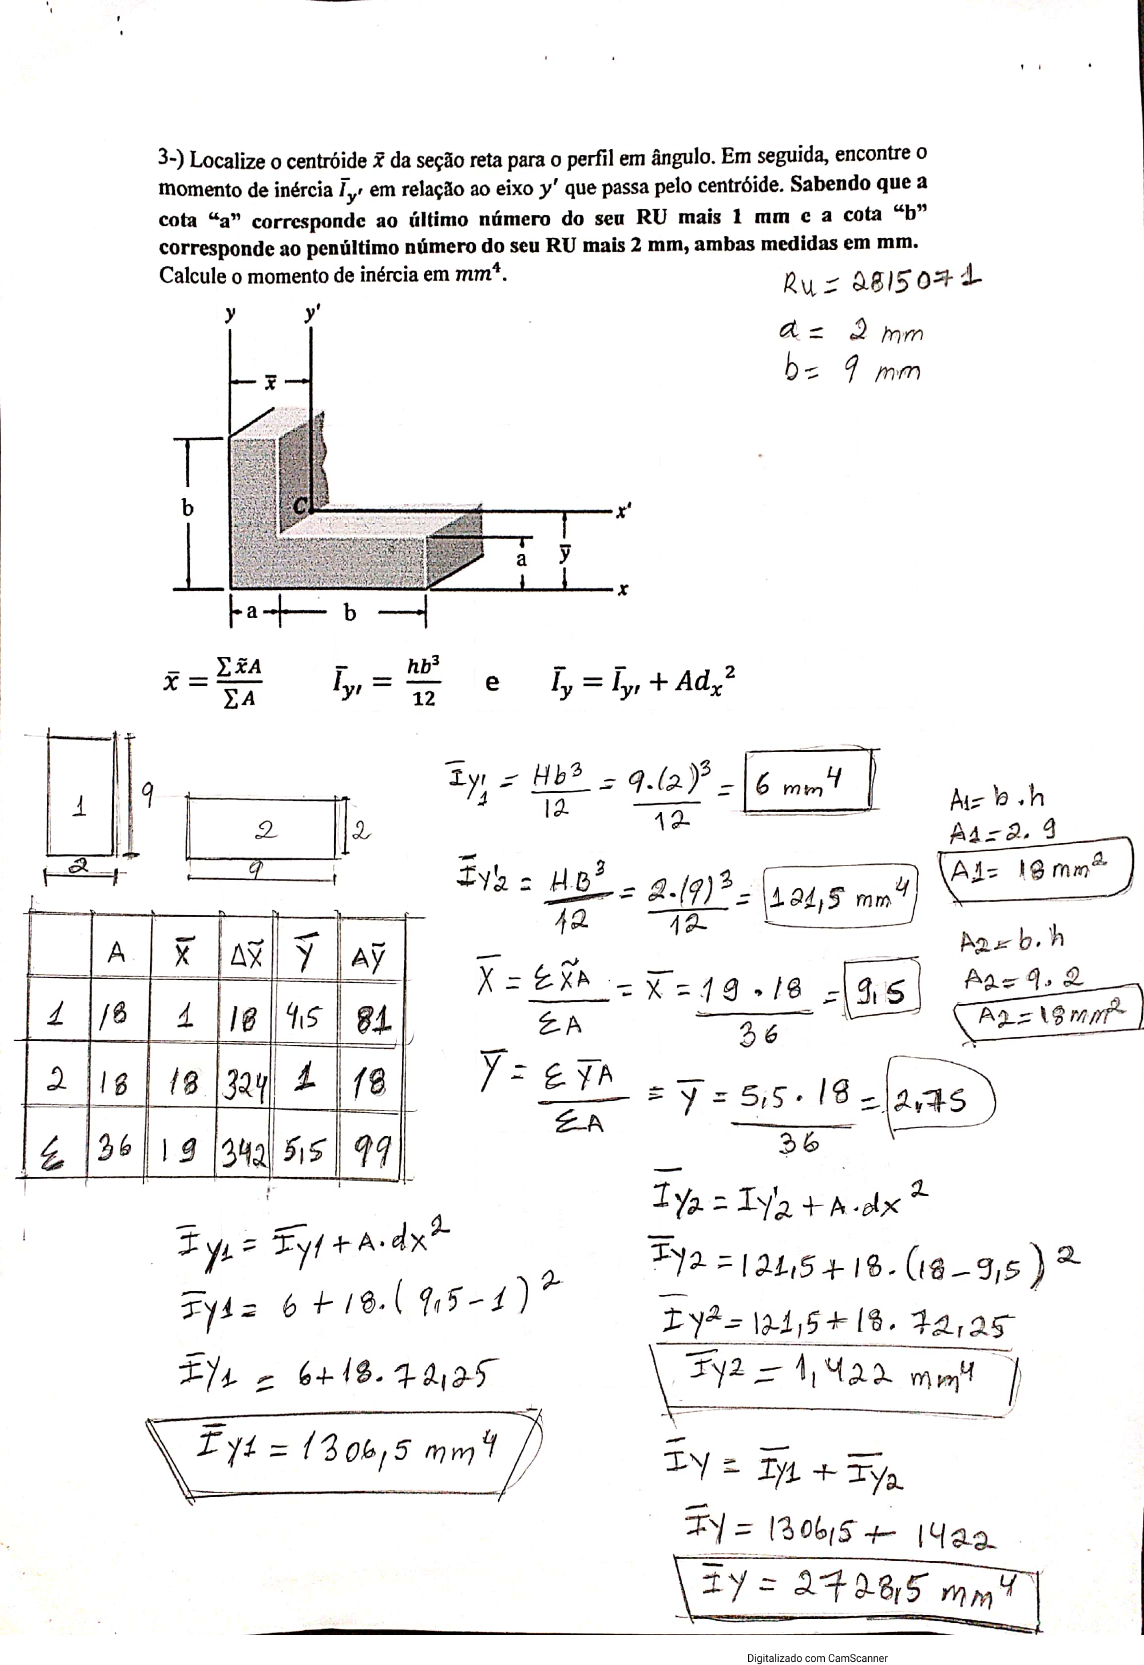 3-) Localize o centróide x̄ da seção reta para o perfil em ângulo. Em seguida, encontre o
momento de inércia Īy′ em relação ao eixo y′ que passa pelo centróide. Sabendo que a
cota “a” corresponde ao último número do seu RU mais 1 mm e a cota “b”
corresponde ao penúltimo número do seu RU mais 2 mm, ambas medidas em mm.
Calcule o momento de inércia em mm⁴.
Ru = 2815071
a = 2 mm
b = 9 mm
y y'
x̄
b
C
x'
a ȳ
x
a b
x̄ = ∑x̃A / ∑A Īy′ = hb³ / 12 e Īy = Īy′ + Adx²
1 9
2
2 2
9
Īy'1 = Hb³ / 12 = 9.(2)³ / 12 = 6 mm⁴
Īy'2 = H.B³ / 12 = 2.(9)³ / 12 = 121,5 mm⁴
A1= b.h
A1=2.9
A1= 18 mm²
A2= b.h
A2= 9.2
A2=18mm²
A X̄ ΔX̃ Ȳ AȲ
1 18 1 18 4,5 81
2 18 18 324 1 18
Σ 36 19 342 5,5 99
X̄ = ΣX̃A / ΣA = X̄ = 19.18 / 36 = 9,5
Ȳ = ΣȲA / ΣA = Ȳ = 5,5.18 / 36 = 2,75
Īy1 = Īy1 + A.dx²
Īy1= 6 + 18.(9,5-1)²
Īy1 = 6+18.72,25
Īy1 = 1306,5 mm⁴
Īy2 = Iy'2 + A.dx²
Īy2 = 121,5 + 18.(18-9,5)²
Īy2 = 121,5 + 18.72,25
Īy2 = 1,422 mm⁴
Īy = Īy1 + Īy2
Īy = 1306,5 + 1422
Īy = 2728,5 mm⁴
Digitalizado com CamScanner